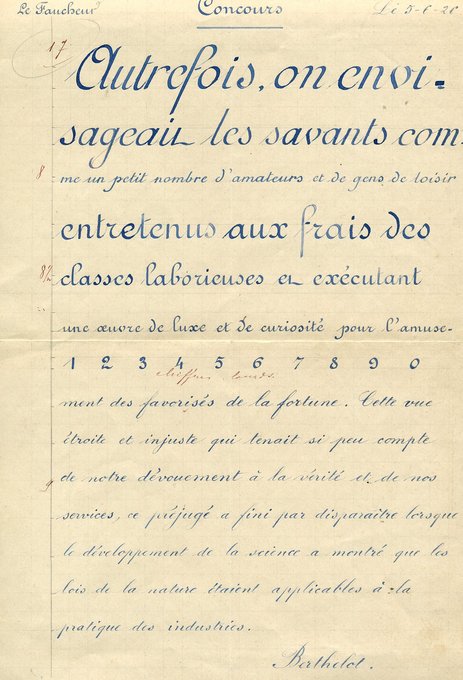 Le Faucheur Concours Le 5-6-26
17
Autrefois, on envi-
sageait les savants com-
8
me un petit nombre d'amateurs et de gens de loisir
entretenus aux frais des
8½
classes laborieuses et exécutant
une œuvre de luxe et de curiosité pour l'amuse-
1 2 3 4 5 6 7 8 9 0
chiffres lourds
ment des favorisés de la fortune. Cette vue
étroite et injuste qui tenait si peu compte
9
de notre dévouement à la vérité et de nos
services, ce préjugé a fini par disparaître lorsque
le développement de la science a montré que les
lois de la nature étaient applicables à la
pratique des industries.
Berthelot.